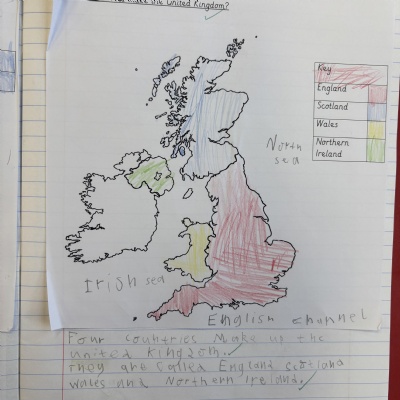 the United Kingdom?
Key
England
Scotland
Wales
Northern
Ireland
North
sea
Irish sea
English channel
Four countries make up the
united kingdom.
They are called England scotland
wales and Northern Ireland.